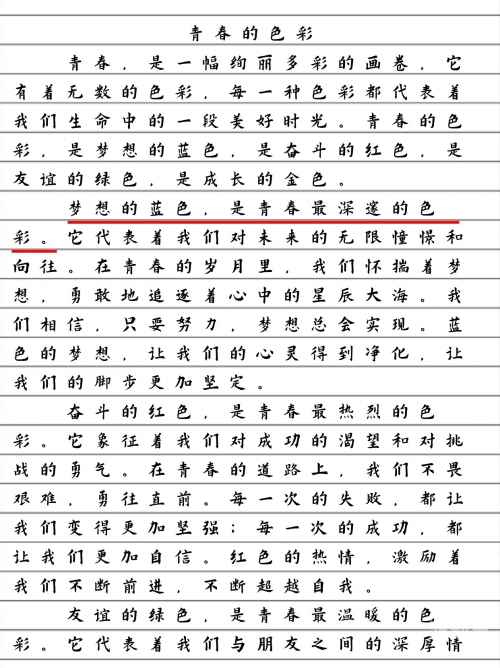 青春的色彩
青春，是一幅绚丽多彩的画卷，它
有着无数的色彩，每一种色彩都代表着
我们生命中的一段美好时光。青春的色
彩，是梦想的蓝色，是奋斗的红色，是
友谊的绿色，是成长的金色。
梦想的蓝色，是青春最深邃的色
彩。它代表着我们对未来的无限憧憬和
向往。在青春的岁月里，我们怀揣着梦
想，勇敢地追逐着心中的星辰大海。我
们相信，只要努力，梦想总会实现。蓝
色的梦想，让我们的心灵得到净化，让
我们的脚步更加坚定。
奋斗的红色，是青春最热烈的色
彩。它象征着我们对成功的渴望和对挑
战的勇气。在青春的道路上，我们不畏
艰难，勇往直前。每一次的失败，都让
我们变得更加坚强；每一次的成功，都
让我们更加自信。红色的热情，激励着
我们不断前进，不断超越自我。
友谊的绿色，是青春最温暖的色
彩。它代表着我们与朋友之间的深厚情